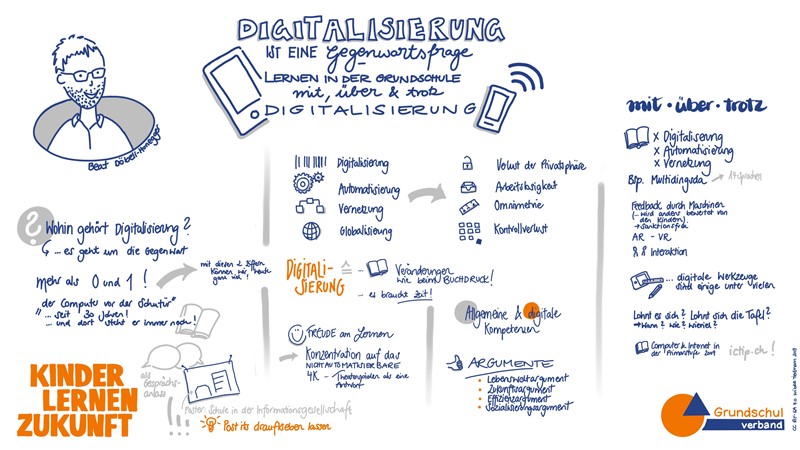 DIGITALISIERUNG
IST EINE Gegenwartsfrage
LERNEN IN DER GRUNDSCHULE
mit, über & trotz
DIGITALISIERUNG
Beat Döbeli Honegger
? Wohin gehört Digitalisierung?
... es geht um die Gegenwart
mehr als 0 und 1!
mit diesen 2 Ziffern
können wir heute
ganz viel!
"der Computer vor der Schultür"
... seit 30 Jahren!
... und dort steht er immer noch!
als
Gesprächs-
anlass
Poster: Schule in der Informationsgesellschaft
Post its draufkleben lassen
KINDER
LERNEN
ZUKUNFT
Digitalisierung
Automatisierung
Vernetzung
Globalisierung
Verlust der Privatsphäre
Arbeitslosigkeit
Omnimetrie
Kontrollverlust
DIGITALI-
SIERUNG
Veränderungen
wie beim BUCHDRUCK!
- es braucht Zeit!
FREUDE am Lernen
Konzentration auf das
NICHT AUTOMATISIERBARE
4K - Theaterspielen als eine
Antwort
Allgemeine & digitale
Kompetenzen
ARGUMENTE
• Lebensweltargument
• Zukunftsargument
• Effizienzargument
• Sozialisierungsargument
mit • über • trotz
x Digitalisierung
x Automatisierung
x Vernetzung
Bsp. Multidingsda
Feedback durch Maschinen
(... wird anders bewertet von
den Kindern)
→ Sanktionsfrei
AR - VR
Interaktion
... digitale Werkzeuge
sind eine unter vielen
Lohnt es sich? Lohnt sich die Tafel?
→ Wann? Wie? Wieviel?
Computer & Internet in
der Primarschule
ictip.ch!
Grundschul
verband